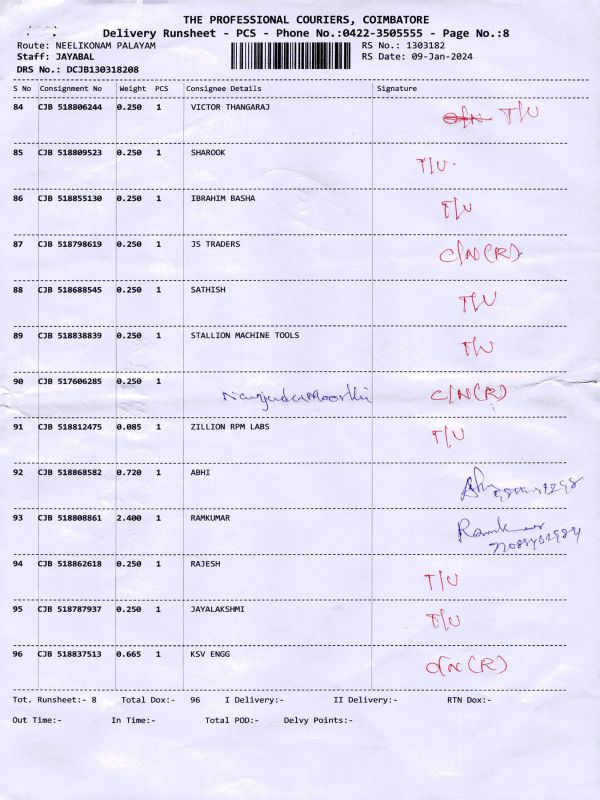 THE PROFESSIONAL COURIERS, COIMBATORE
Delivery Runsheet - PCS - Phone No.:0422-3505555 - Page No.:8
Route: NEELIKONAM PALAYAM RS No.: 1303182
Staff: JAYABAL RS Date: 09-Jan-2024
DRS No.: DCJB130318208
S No Consignment No Weight PCS Consignee Details Signature
84 CJB 518806244 0.250 1 VICTOR THANGARAJ T/U
85 CJB 518809523 0.250 1 SHAROOK T/U.
86 CJB 518855130 0.250 1 IBRAHIM BASHA T/U
87 CJB 518798619 0.250 1 JS TRADERS C/N(R)
88 CJB 518688545 0.250 1 SATHISH T/U
89 CJB 518838839 0.250 1 STALLION MACHINE TOOLS T/U
90 CJB 517606285 0.250 1 C/N(R)
91 CJB 518812475 0.085 1 ZILLION RPM LABS T/U
92 CJB 518868582 0.720 1 ABHI
93 CJB 518808861 2.400 1 RAMKUMAR Ramkumar
94 CJB 518862618 0.250 1 RAJESH T/U
95 CJB 518787937 0.250 1 JAYALAKSHMI T/U
96 CJB 518837513 0.665 1 KSV ENGG C/N(R)
Tot. Runsheet:- 8 Total Dox:- 96 I Delivery:- II Delivery:- RTN Dox:-
Out Time:- In Time:- Total POD:- Delvy Points:-